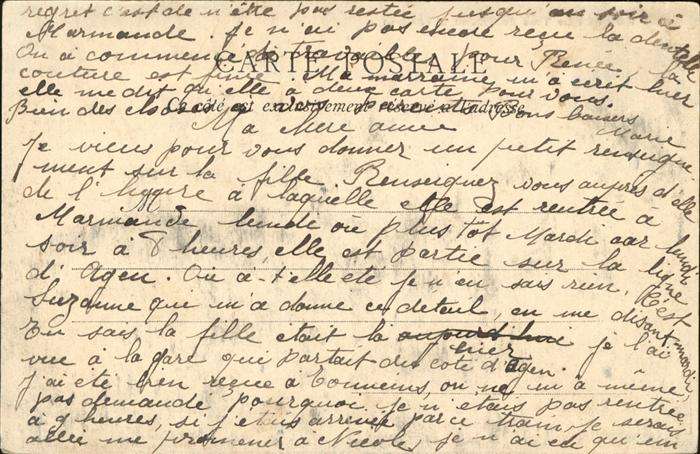 regret c'est de n'être pas restée jusqu'au soir à
Marmande. Je n'ai pas encore reçu la dentelle
On a commencé à travailler pour Renée, la
CARTE POSTALE
couture est finie. Ma marraine m'a écrit hier
elle me dit qu'elle a deux carte pour vous.
Ce côté est exclusivement réservé à l'adresse
Bien des choses à père et à vous baisers
Marie
Ma Mère aimée
Je viens pour vous donner un petit renseigne
ment sur la fille Renseignez vous auprès d'elle
de l'heure à laquelle elle est rentrée à
Marmande lundi ou plus tôt Mardi car lundi
soir à 8 heures, elle est partie sur la ligne
d'Agen. Où a-t-elle été je n'en sais rien, C'est
Suzanne qui m'a donné ce détail, en me disant maman
Tu sais la fille était là hier je l'ai
vue à la gare qui partait du côté d'Agen.
J'ai été bien reçue à Tonneins, on ne m'a même
pas demandé pourquoi je n'étais pas rentrée
à 9 heures, si j'étais arrivée par ce train je serais
allée me promener à Nicole, je n'ai eu qu'un